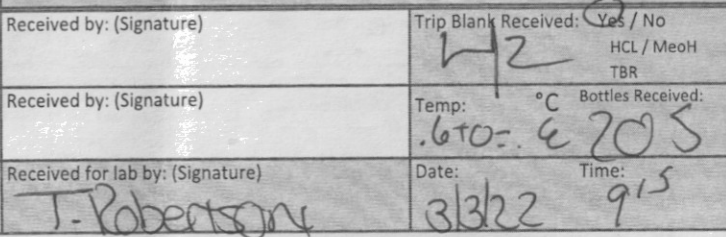 Received by: (Signature)
Trip Blank Received: Yes / No
HCL / MeoH
TBR
42
Received by: (Signature)
Temp: °C
.6+0=.6
Bottles Received:
205
Received for lab by: (Signature)
T. Robertson
Date:
3/3/22
Time:
915